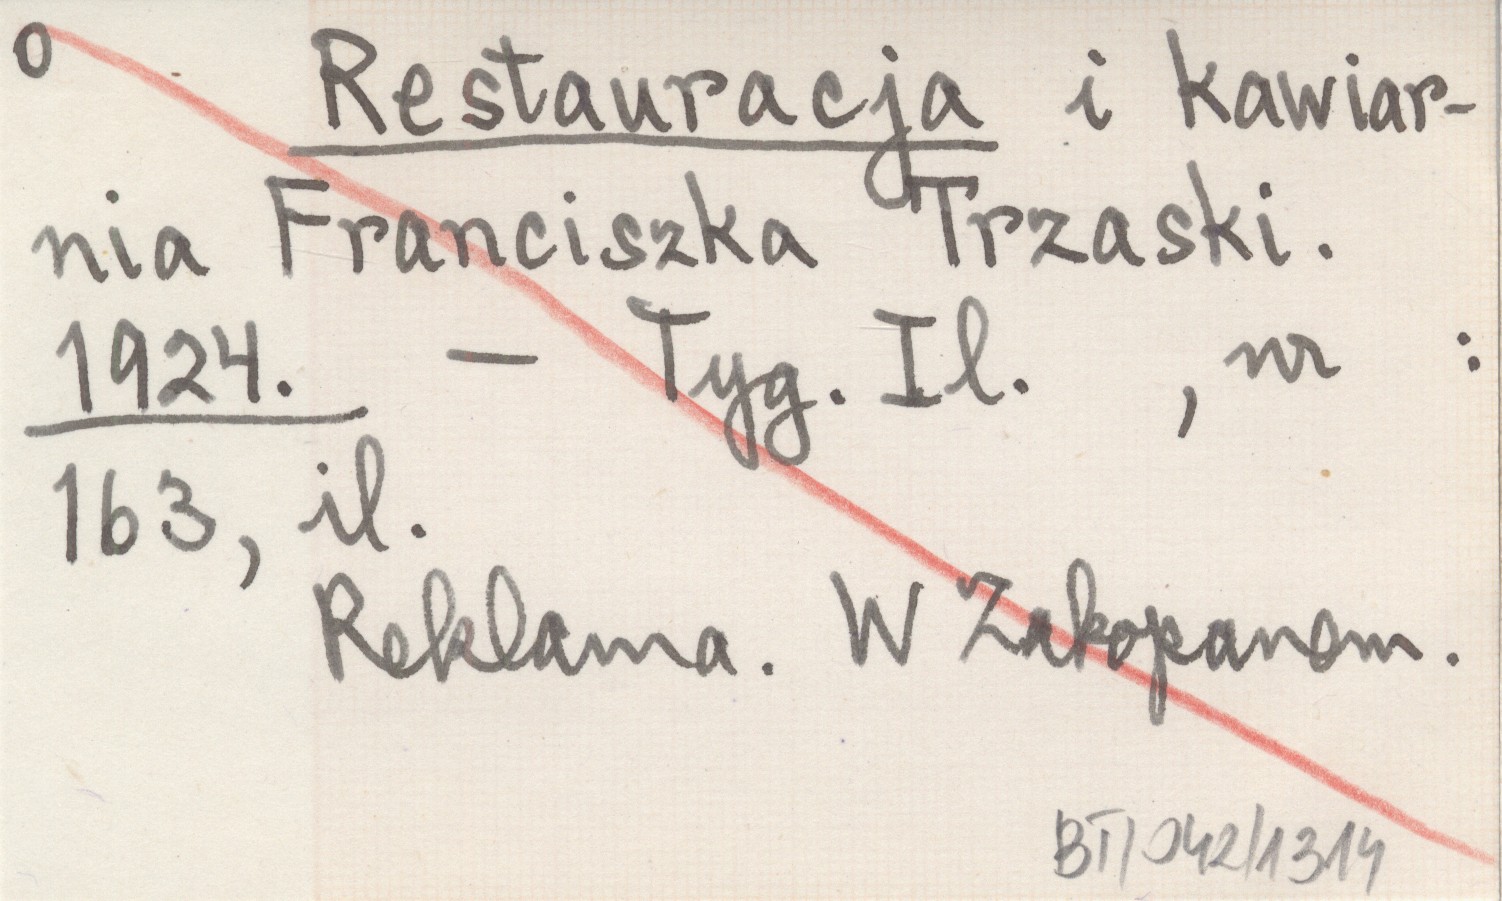 o Restauracja i kawiar-
nia Franciszka Trzaski.
1924. — Tyg. Il. , nr :
163, il.
Reklama. W Zakopanem.
BT/042/1314